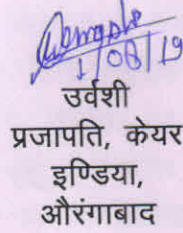 1/08/19
उर्वशी
प्रजापति, केयर
इण्डिया,
औरंगाबाद